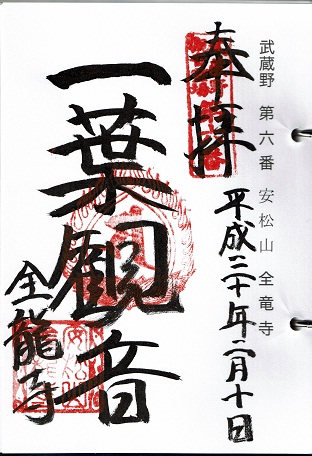 武蔵野 第六番 安松山 全竜寺
奉拝
平成三十年二月十日
一葉観音
全龍寺